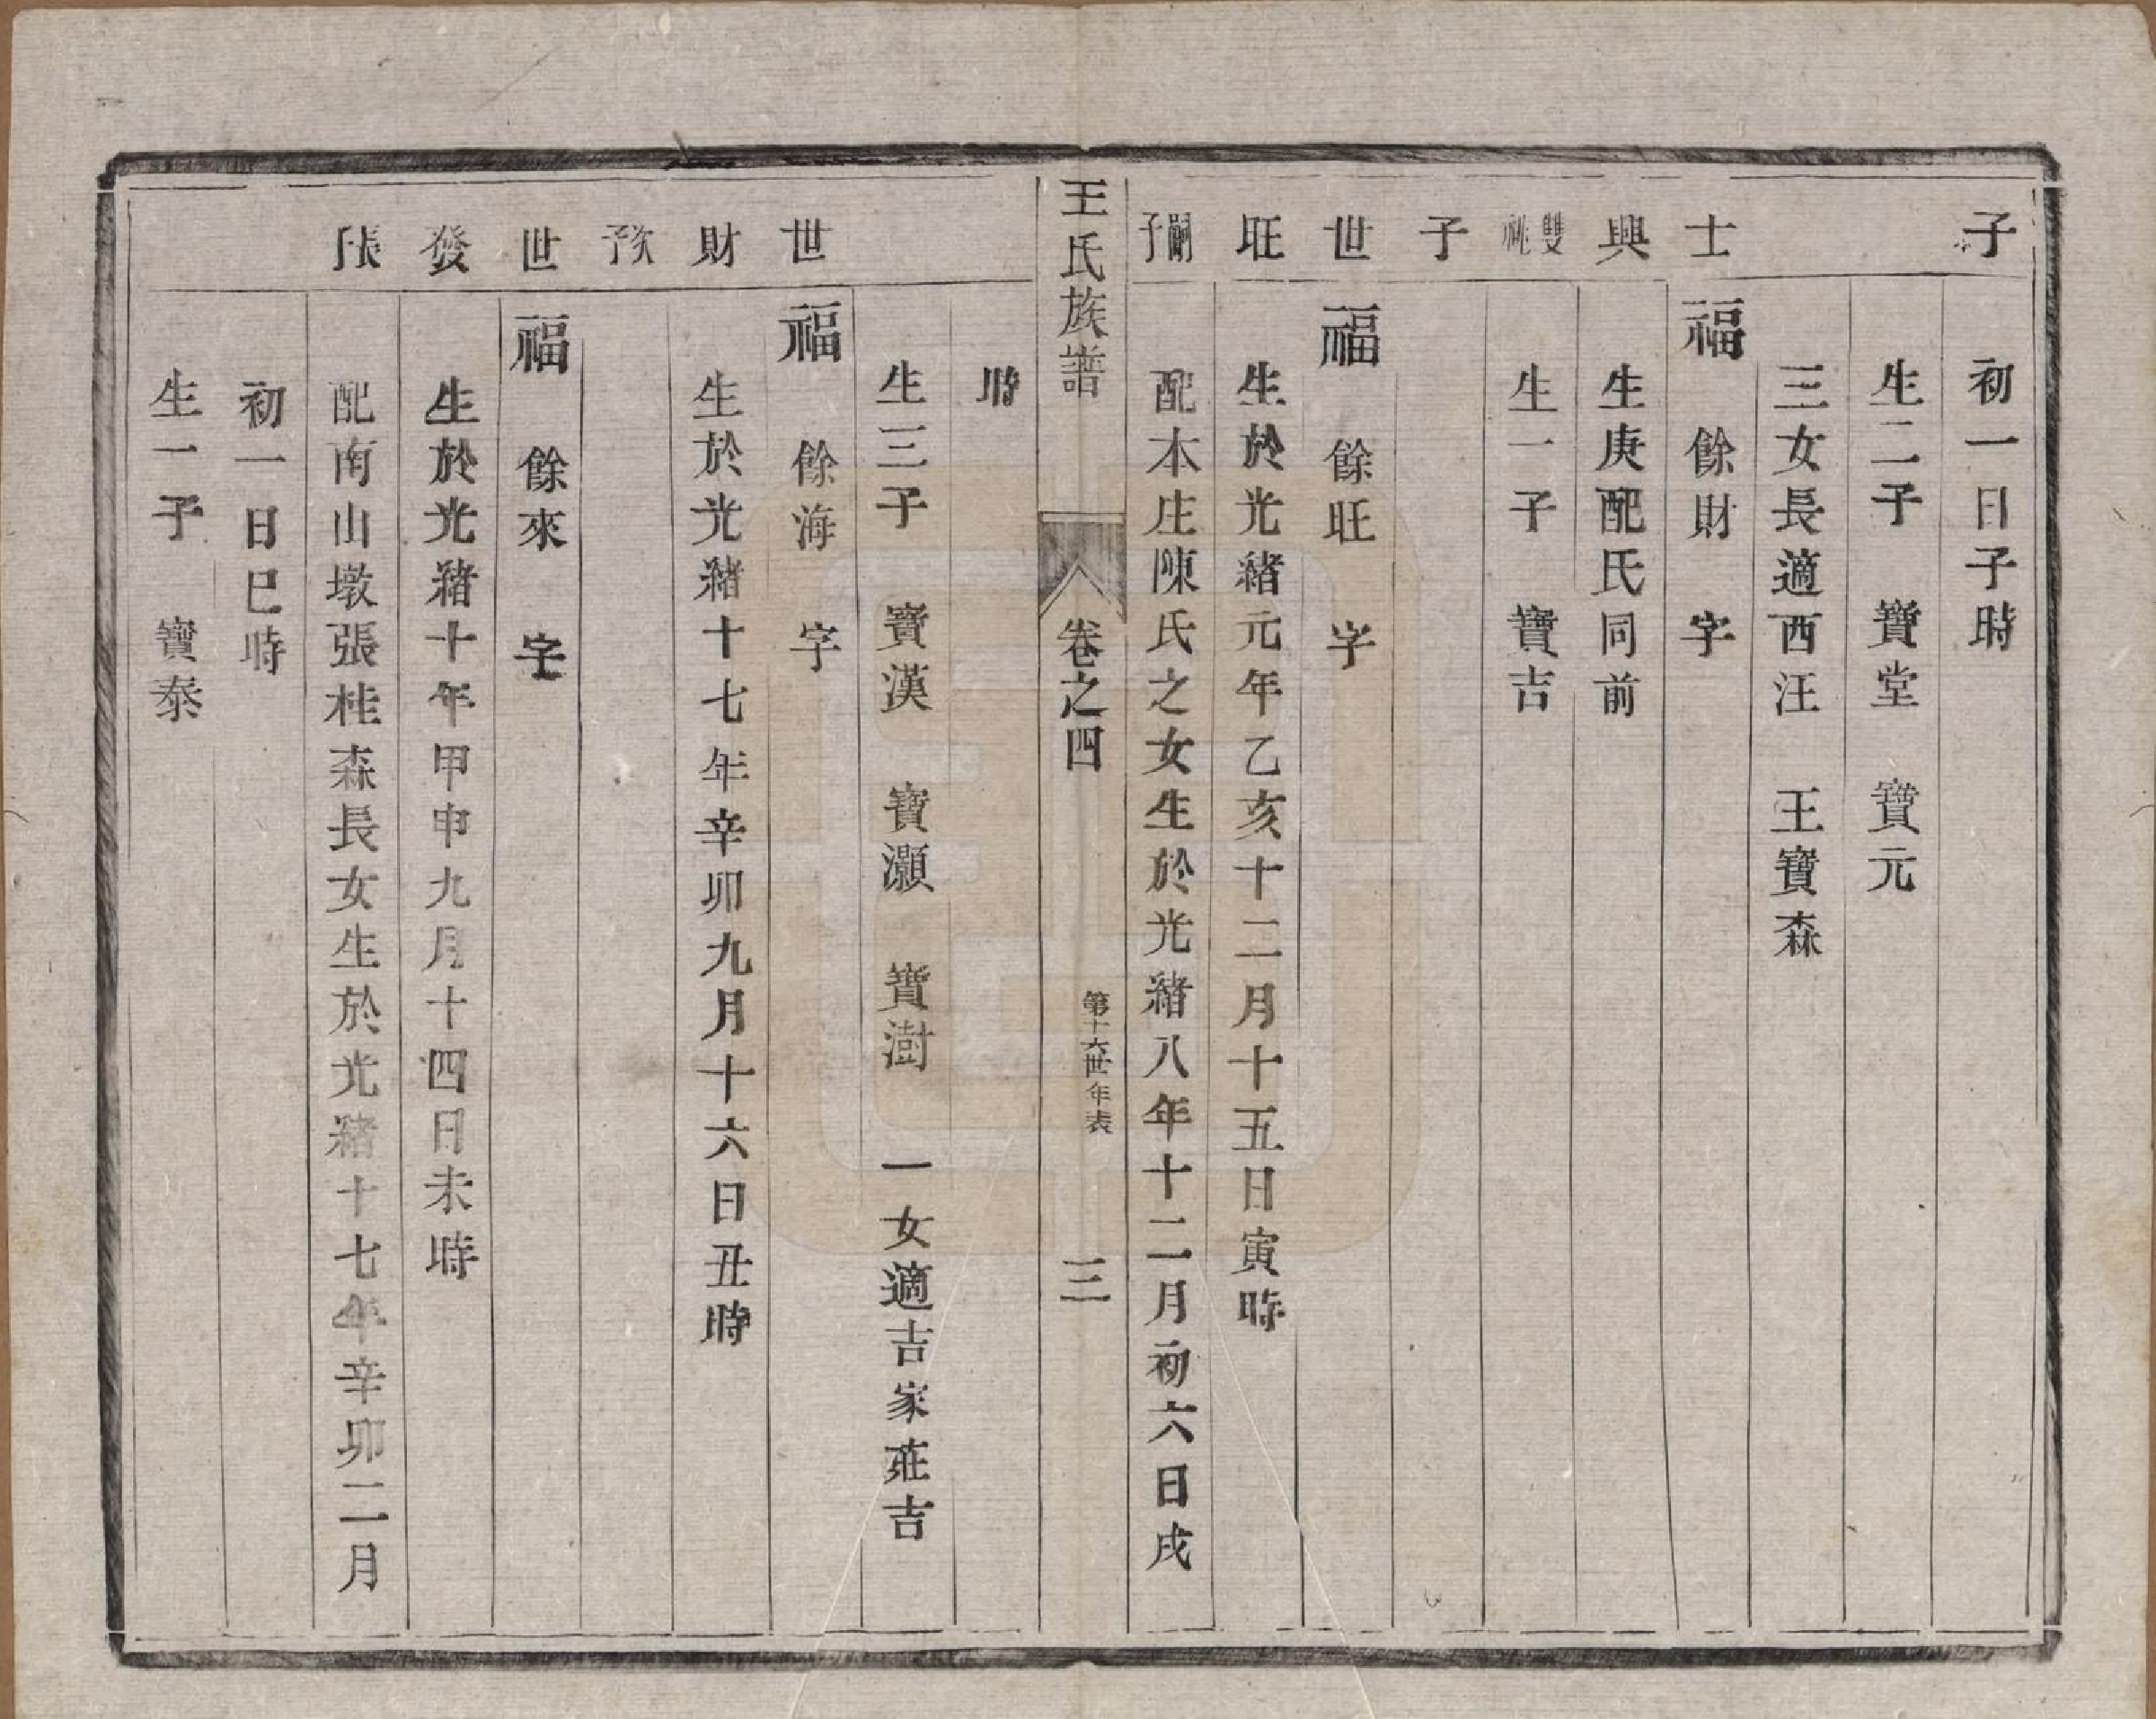 子
初一日子時
生二子　寶堂　寶元
三女長適西汪　王寶森
士興雙祧子
福　餘財　字
生庚配氏同前
生一子　寶吉
世旺嗣子
福　餘旺　字
生於光緒元年乙亥十二月十五日寅時
配本庄陳氏之女生於光緒八年十二月初六日戌
王氏族譜　卷之四　第十六世年表　三
時
生三子　寶漢　寶灝　寶澍　一女適吉家莊吉
世財次子
福　餘海　字
生於光緒十七年辛卯九月十六日丑時
世發長子
福　餘來　字
生於光緒十年甲申九月十四日未時
配南山墩張桂森長女生於光緒十七年辛卯二月
初一日巳時
生一子　寶泰